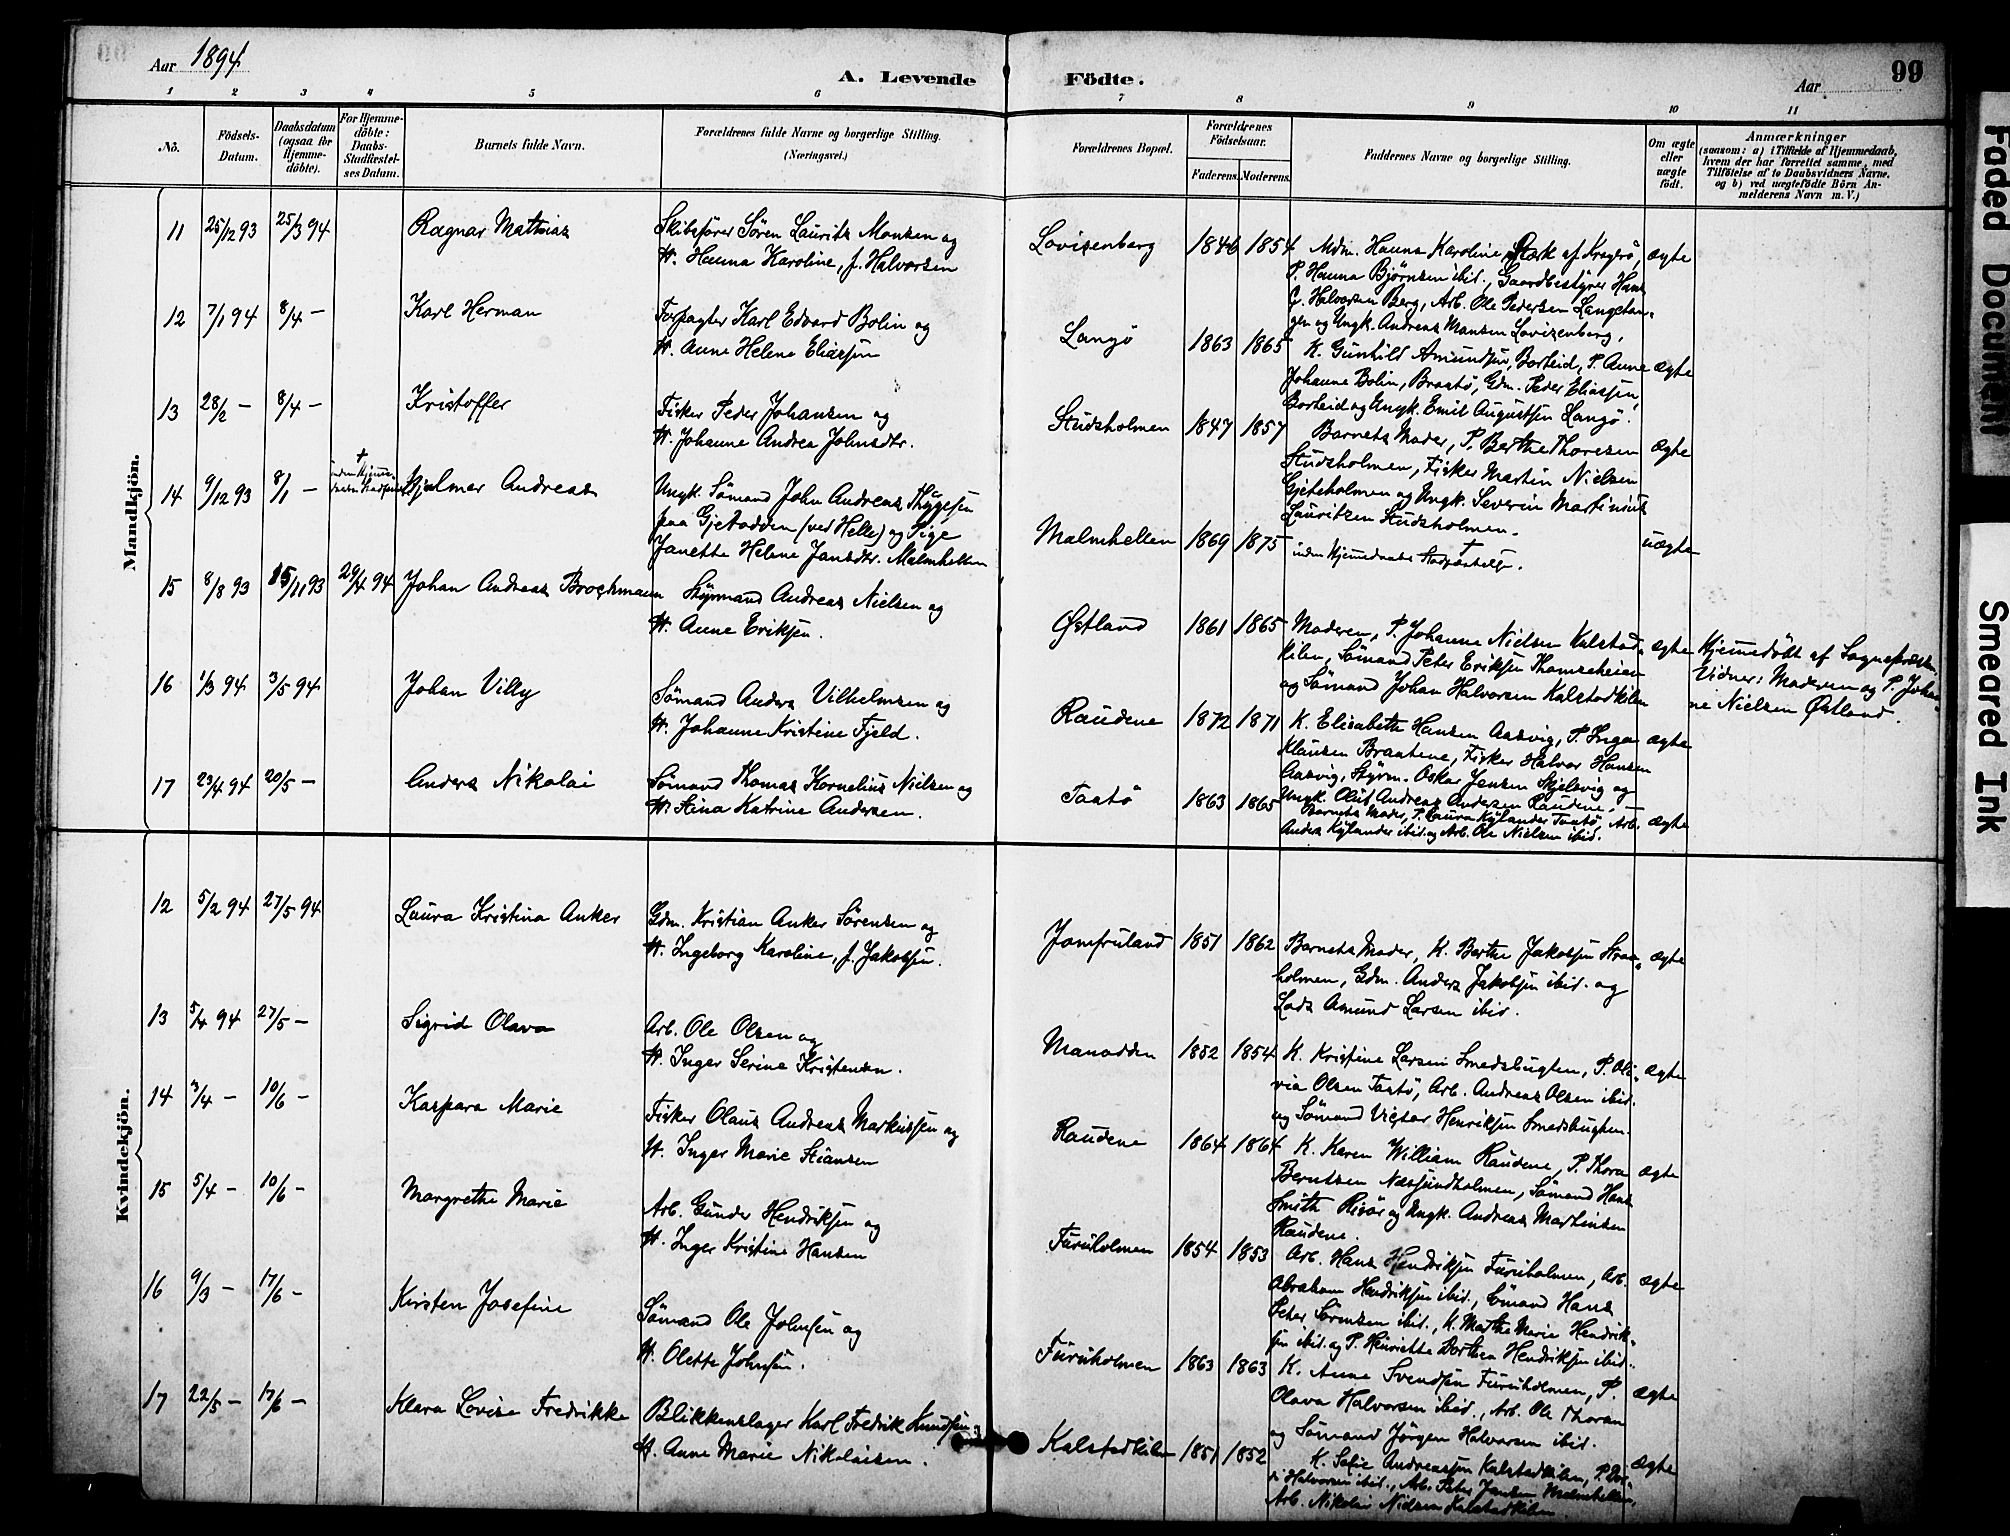 Aar 1894
A. Levende
Födte.
Aar
99
1 2 3 4 5 6 7 8 9 10 11
No.
Födsels-Datum.
Daabsdatum (ogsaa for Hjemme-döbte).
For Hjemme-döbte: Daabs-Stadfæstel-ses Datum.
Barnets fulde Navn.
Forældrenes fulde Navne og borgerlige Stilling.
(Næringsvei.)
Forældrenes Bopæl.
Forældrenes Födselsaar.
Faderens. Moderens.
Faddernes Navne og borgerlige Stilling.
Om ægte eller uægte födt.
Anmærkninger
(saasom: a) i Tilfælde af Hjemmedaab,
hvem der har forrettet samme, med
Tilföielse af to Daabsvidners Navne.
og b) ved uægtefödte Börn An-
melderens Navn m. V.)
Mandkjön.
11 25/12 93 25/3 94 Ragnar Mathias
Skibsfører Søren Laurits Monsen og
H. Hanna Karoline, f. Halvorsen
Lovisenberg 1846 1854
Mdm. Hanna Karoline af Kragerø, ægte
P. Hanna Bjørnsen ibid., Gaardbestyrer Hans
G. Halvorsen Berg, Arb. Ole Pedersen Langetan-
gen og Ungk. Andreas Monsen Lovisenberg.
12 7/1 94 8/4 — Karl Herman
Forpagter Karl Edvard Bolin og
H. Anne Helene Eliassen
Langö 1863 1865
K. Gunhild Amundsen, Barteid, P. Anne ægte
Johanne Bolin, Braatö, Gdm. Peder Eliassen,
Barteid og Ungk. Emil Augustsen Langö.
13 28/2 — 8/4 — Kristoffer
Fisker Peder Johansen og
H. Johanne Andrea Johnsdtr.
Studsholmen 1847 1857
Barnets Moder, P. Berthe Thoresen ægte
Studsholmen, Fisker Martin Nielsen
Gjeteholmen og Ungk. Severin Martinius
Lauritsen Studsholmen.
14 9/12 93 8/1 — Hjalmar Andreas
Ungk. Sömand John Andreas Thygesen
paa Gjetodden (ved Helle) og Pige
Janette Helene Jansdtr. Malmhellen
Malmhellen 1869 1875
uden Hjemmedaabs Stadfæstelse. uægte
15 8/8 93 15/11 93 29/4 94 Johan Andreas Brochmann
Styrmand Andreas Nielsen og
H. Anne Eriksen.
Østland 1861 1865
Moderen, P. Johanne Nielsen Kalstad- ægte
kilen, Sömand Peter Eriksen Thomesheian
og Sömand Johan Halvorsen Kalstadkilen
Hjemmedöbt af Sognepræsten
Vidner: Moderen og P. Johan-
ne Nielsen Østland.
16 1/3 94 3/5 94 Johan Villy
Sömand Anders Vilhelmsen og
H. Johanne Kristine Fjeld.
Raudene 1872 1871
K. Elisabeth Hansen Aasvig, P. Inga ægte
Klausen Braatene, Fisker Halvor Hansen
Aasvig, Styrm. Oskar Jensen Skjelsvig og
Ungk. Oluf Andreas Andersen Raudene.
17 23/4 94 20/5 — Anders Nikolai
Sömand Thomas Kornelius Nielsen og
H. Stina Katrine Andersen.
Taatö 1863 1865
Barnets Moder, P. Laura Kylander Taatö, Arb. ægte
Anders Kylander ibid. og Arb. Ole Nielsen ibid.
Kvindekjön.
12 5/2 94 27/5 94 Laura Kristina Anker
Gdm. Kristian Anker Sörensen og
H. Ingeborg Karoline, f. Jakobsen.
Jomfruland 1851 1862
Barnets Moder, K. Berthe Jakobsen Straa- ægte
holmen, Gdm. Anders Jakobsen ibid. og
Lods Amund Larsen ibid.
13 5/4 94 27/5 — Sigrid Olava
Arb. Ole Olsen og
H. Inger Serine Kristensen.
Manodden 1852 1854
K. Kristine Larsen Smedsbugten, P. Oli- ægte
via Olsen Taatö, Arb. Andreas Olsen ibid.
og Sömand Victor Henriksen Smedsbugten.
14 3/4 — 10/6 — Kaspara Marie
Fisker Olaus Andreas Markussen og
H. Inger Marie Stiansen
Raudene 1864 1864
K. Karen William Raudene, P. Thora ægte
Berntsen Næsundholmen, Sömand Hans
Smith Risör og Ungk. Andreas Martinsen
Raudene.
15 5/4 — 10/6 — Margrethe Marie
Arb. Gunder Hendriksen og
H. Inger Kristine Hansen
Furuholmen 1854 1853
Arb. Hans Hendriksen Furuholmen, Arb. ægte
Abraham Hendriksen ibid., Sömand Hans
Peter Sörensen ibid., K. Marthe Marie Hendrik-
sen ibid. og P. Henriette Dorthea Hendriksen ibid.
16 9/3 — 17/6 — Kirsten Josefine
Sömand Ole Johnsen og
H. Olette Johnsen.
Furuholmen 1863 1863
K. Anne Svendsen Furuholmen, P. ægte
Olava Halvorsen ibid., Arb. Ole Thoran
og Sömand Jörgen Halvorsen ibid.
17 22/5 — 17/6 — Klara Lovise Fredrikke
Blikkenslager Karl Fredrik Knudsen og
H. Anne Marie Nikolaisen.
Kalstadkilen 1851 1852
K. Sofie Andreassen Kalstadkilen, P. ægte
Halvorsen ibid., Arb. Peter Jansen Malmhellen,
Arb. Nikolai Nielsen Kalstadkilen.
Faded Document
Smeared Ink